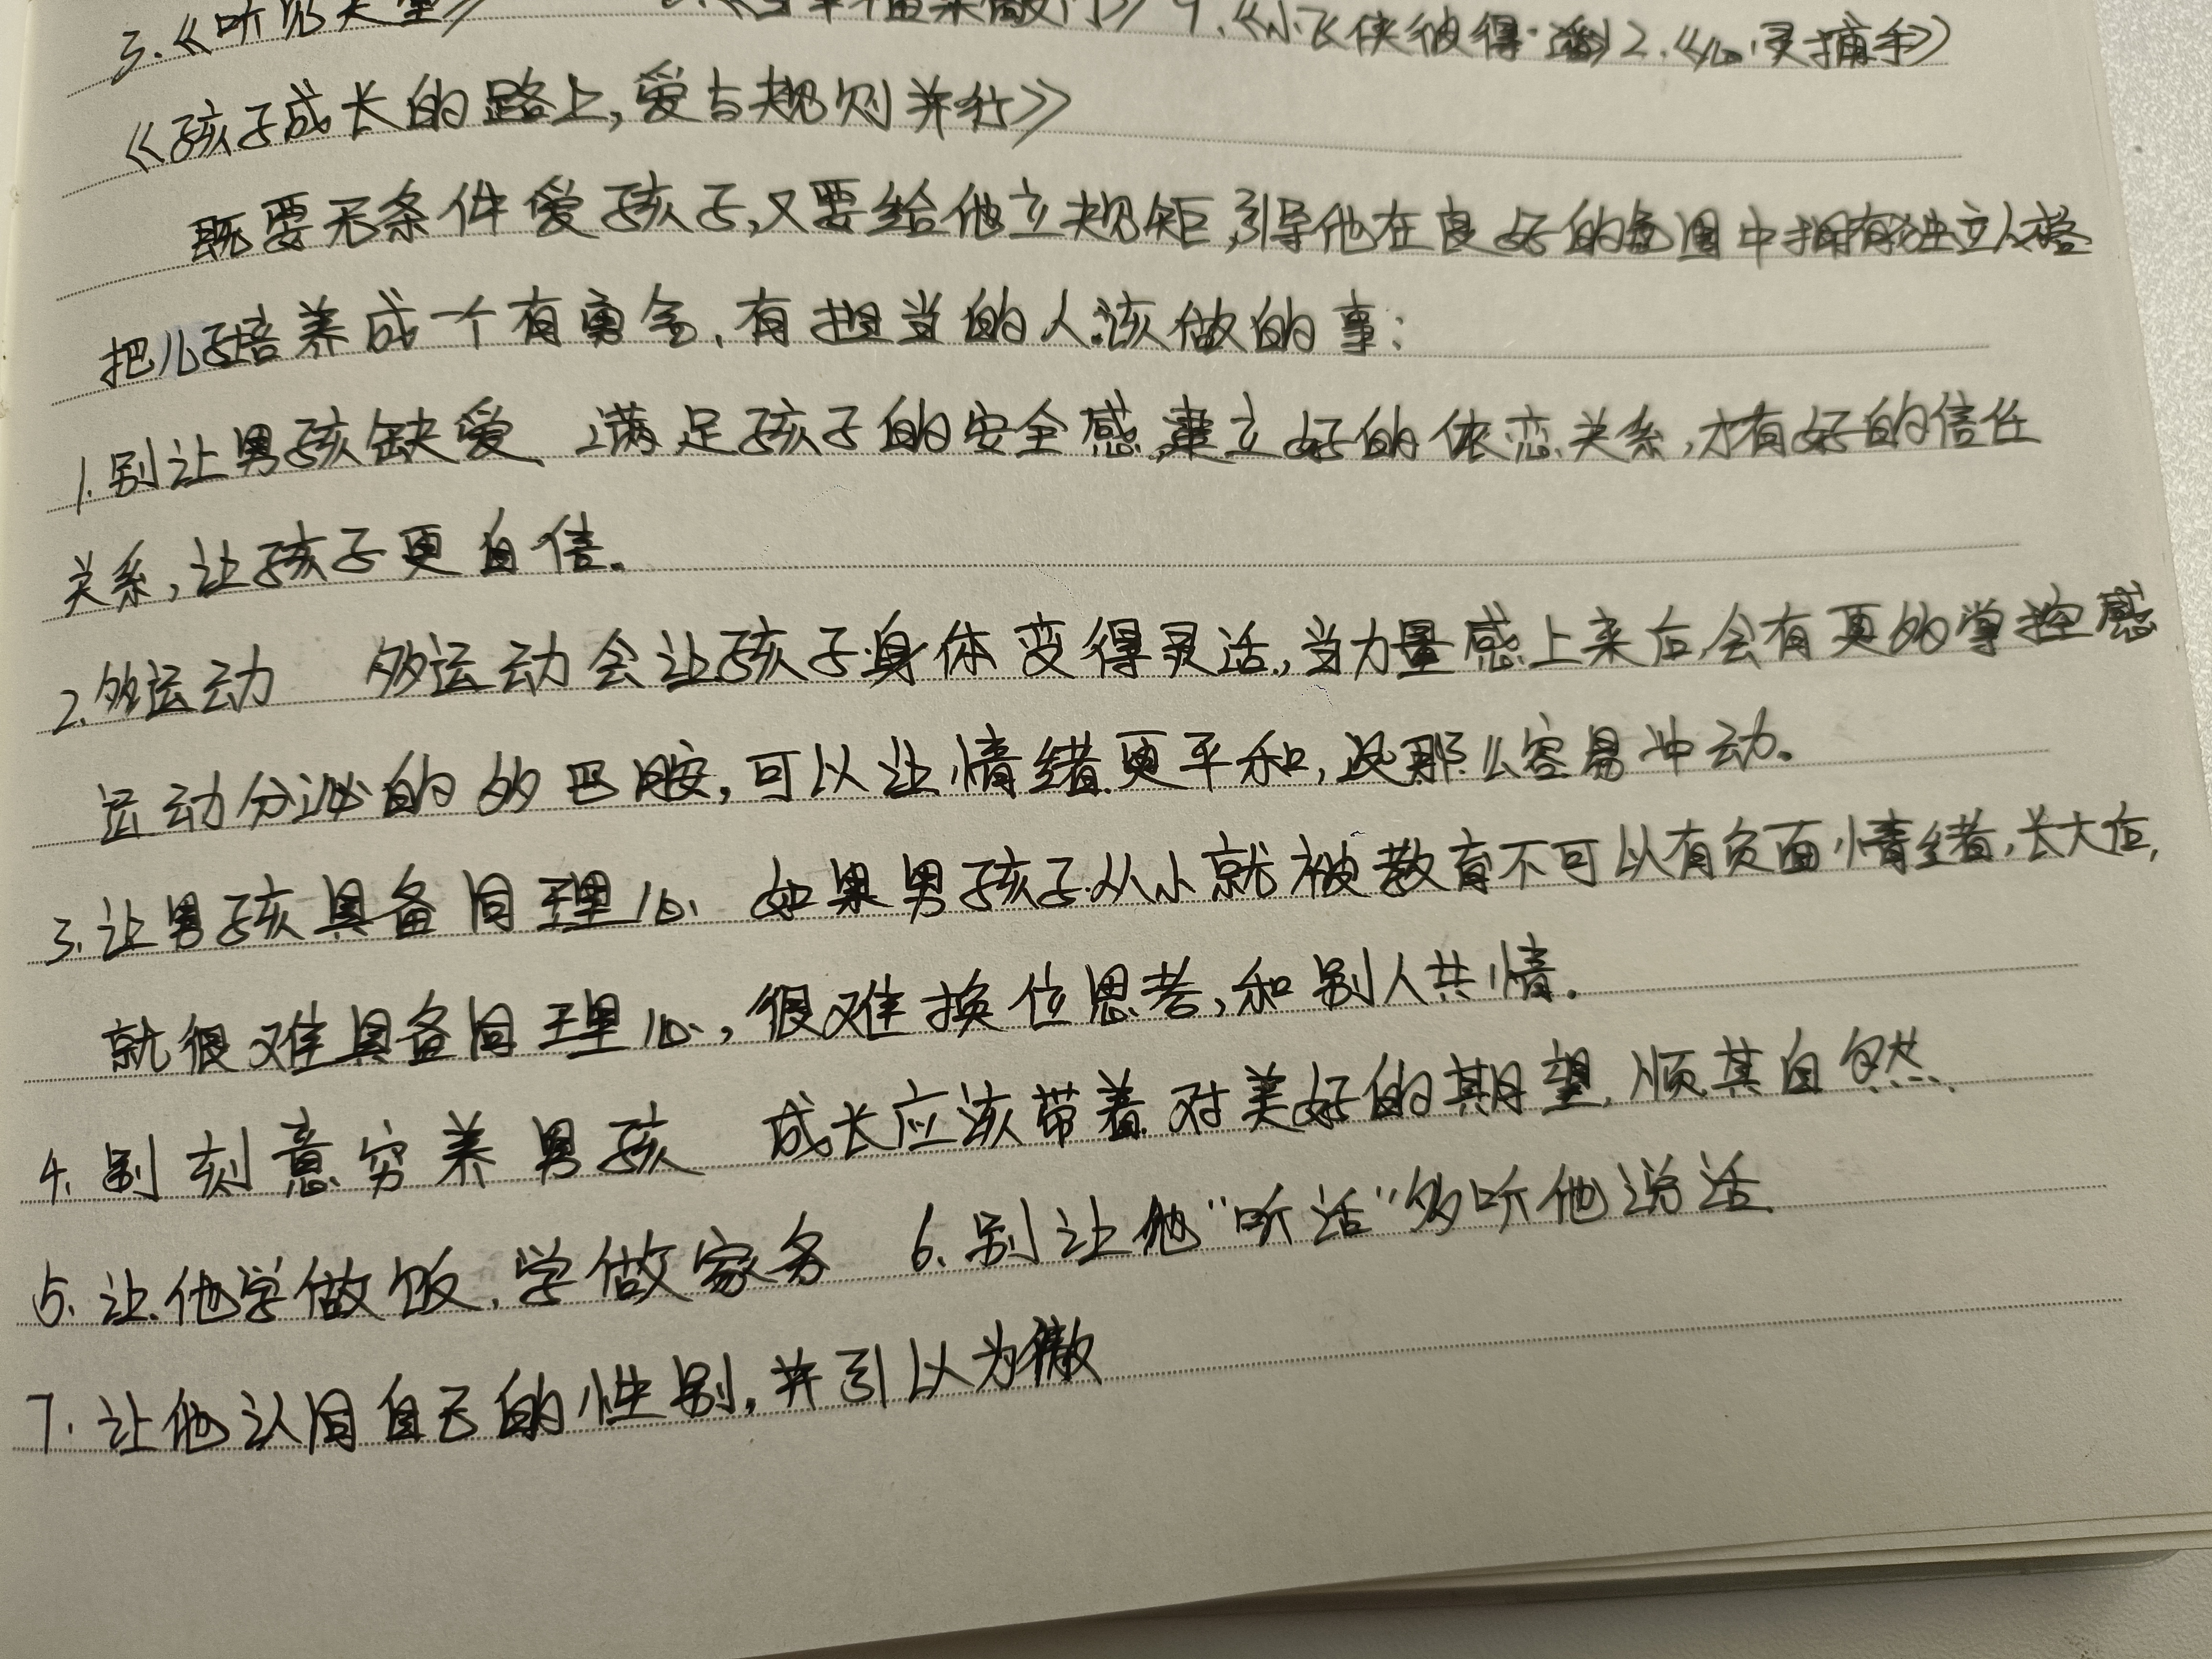 3.《听见天堂》 《当幸福来敲门》 4.《小飞侠彼得·潘》2.《心灵捕手》
《孩子成长的路上,爱与规则并行》
既要无条件爱孩子,又要给他立规矩,引导他在良好的氛围中拥有独立人格
把儿子培养成一个有勇气,有担当的人该做的事:
1.别让男孩缺爱 满足孩子的安全感,建立好的依恋关系,才有好的信任
关系,让孩子更自信。
2.多运动 多运动会让孩子身体变得灵活,当力量感上来后,会有更多的掌控感
运动分泌的多巴胺,可以让情绪更平和,没那么容易冲动。
3.让男孩具备同理心 如果男孩子从小就被教育不可以有负面情绪,长大后,
就很难具备同理心,很难换位思考,和别人共情.
4.别刻意穷养男孩 成长应该带着对美好的期望,顺其自然.
5.让他学做饭,学做家务 6.别让他"听话"多听他说话
7.让他认同自己的性别,并引以为傲